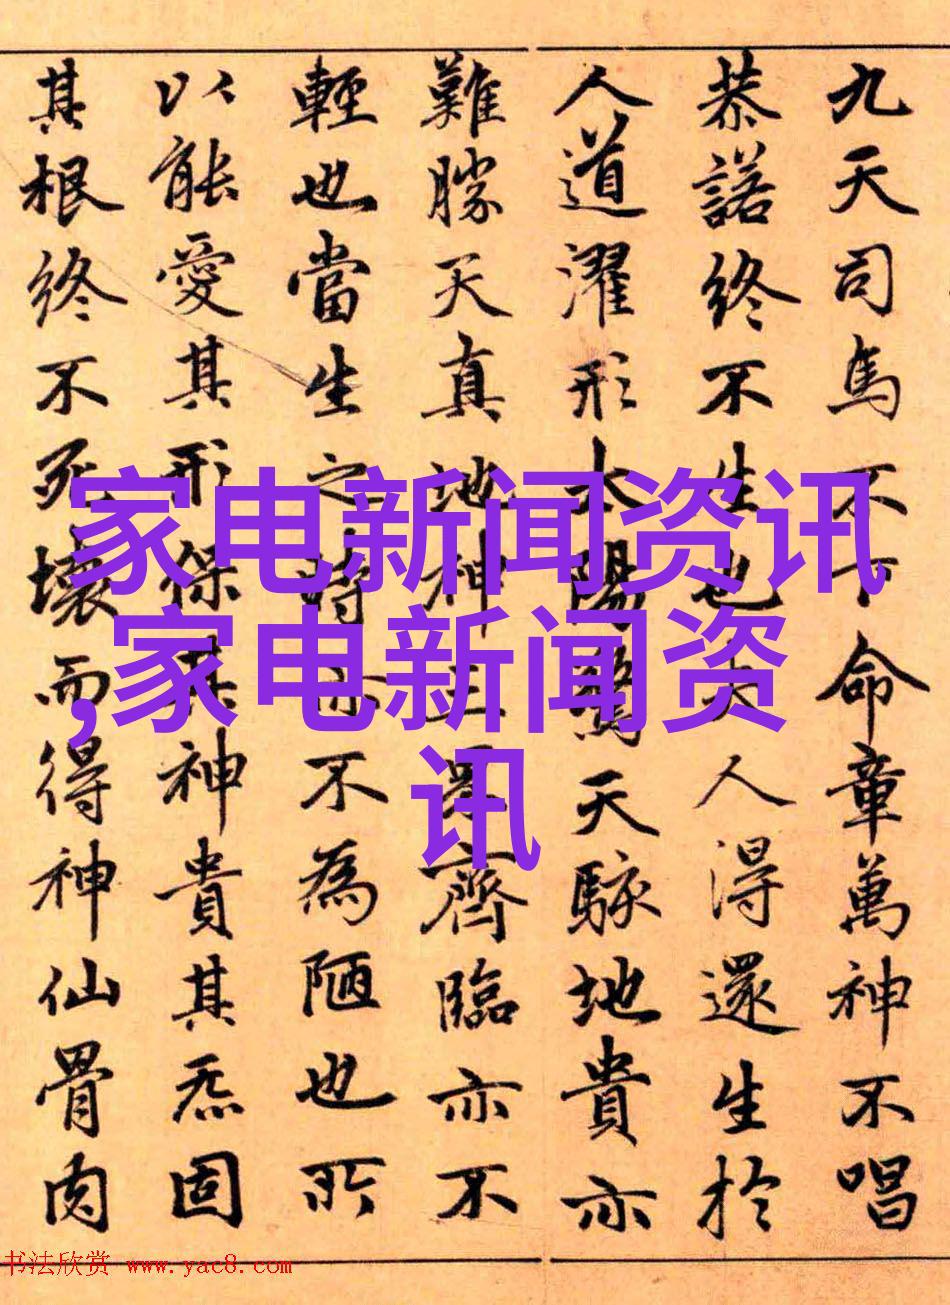 九天司馬不下命章萬神不唱
恭諾終不生也夫人得還生於
人道濯形太陽驚天駭地貴亦
難勝天真地神三界齊臨亦不
輕也當生之時亦不為陋也所
以能愛其形保其神貴其炁固
其根終不死壞而得神仙骨肉
家电新闻资讯
,家电新闻资
讯
书法欣赏 www.yac8.com